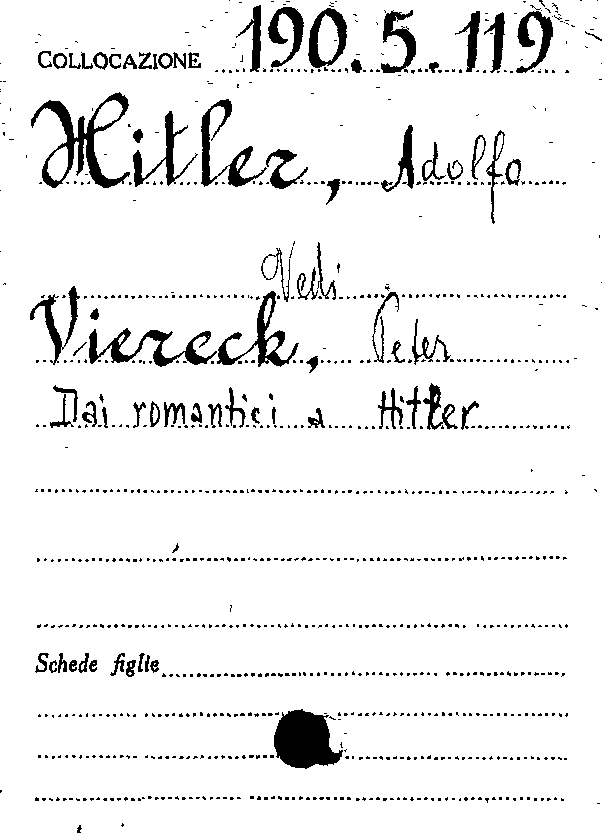 COLLOCAZIONE 190.5.119
Hitler, Adolfo
Vedi
Viereck, Peter
Dai romantici a Hitler
Schede figlie